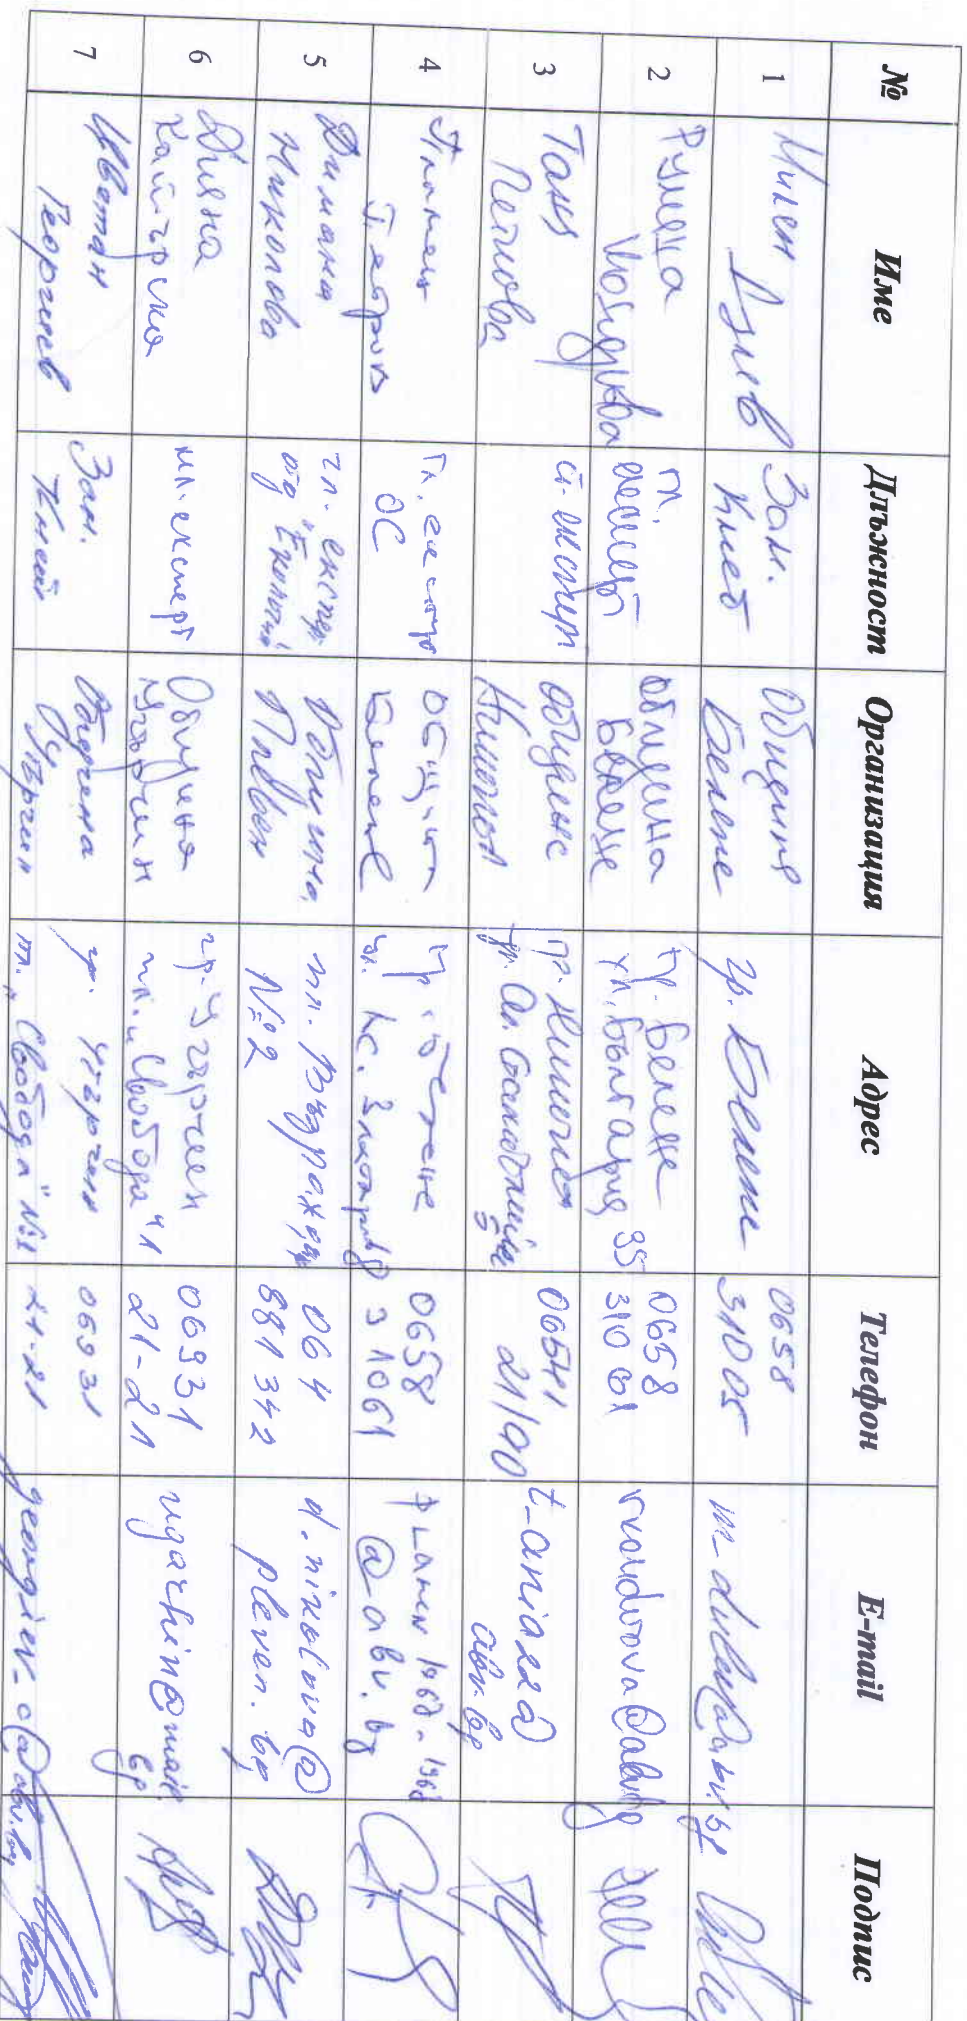 № Име Длъжност Организация Адрес Телефон E-mail Подпис
1 Милен Дулев Зам. Кмет Община Белене гр. Белене 0658 31005
2 Румена гл. експерт община Белене гр. Белене ул. България 35 0658 31001
3 Таня Петкова ст. експерт община Никопол гр. Никопол 06541 21/90
4 Пламен Петров Гл. експерт ОС община Белене гр. Белене 0658 31061 @abv.bg
5 Димана Николова гл. експерт отд. "Екология" Община Плевен пл. Възраждане №2 064 881 342 d.nikolova@pleven.bg
6 Дияна мл. експерт Община Угърчин гр. Угърчин пл. "Свобода" 1 06931 21-21 ugarchin@mail.bg
7 Цветан Георгиев Зам. Кмет Община Угърчин гр. Угърчин пл. "Свобода" №1 06931 21-21 georgiev_c@abv.bg